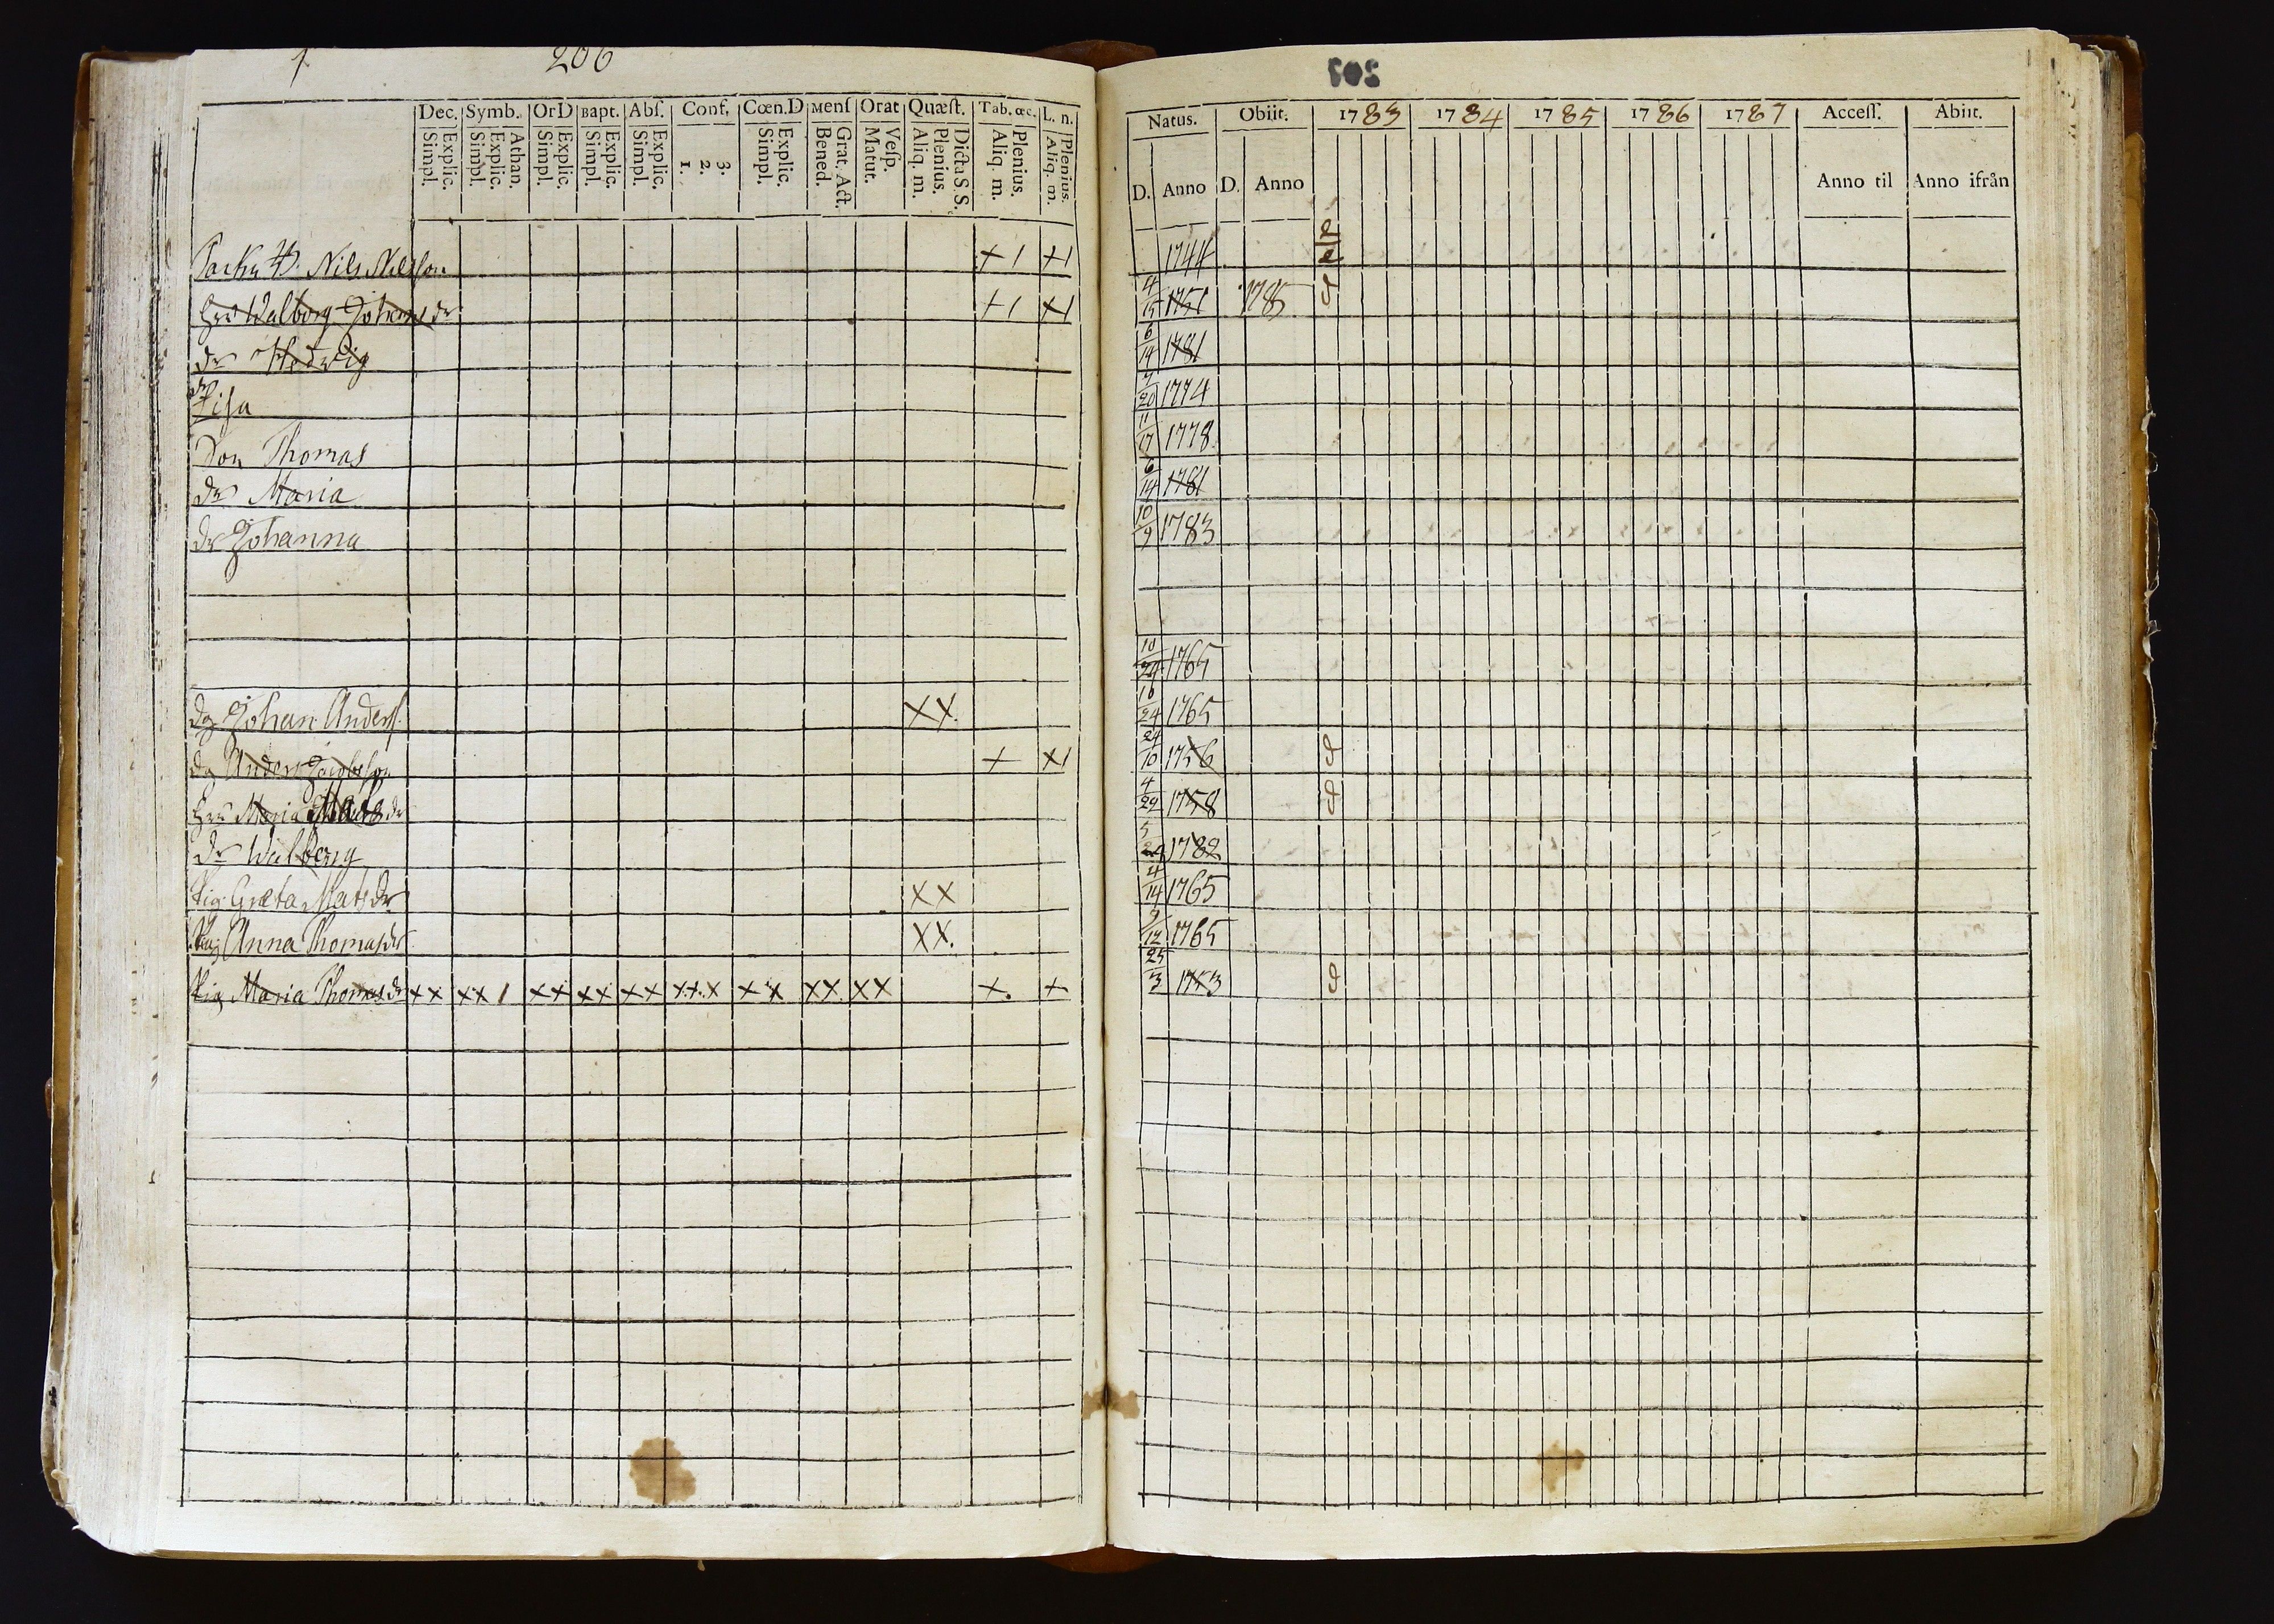 206
Dec. Symb. OrD Bapt. Abſ. Conf. Cœn.D Menſ Orat Quæſt. Tab. œc. L. n.
Explic. Simpl. Athan. Explic. Simpl. Explic. Simpl. Explic. Simpl. Explic. Simpl. 3. 2. 1. Explic. Simpl. Grat. Act. Bened. Veſp. Matut. Dicta S. S. Plenius. Aliq. m. Plenius. Aliq. m. Plenius. Aliq. m.
Nils Nilsson + 1 + 1
Hru Walborg Johans dr + 1 + 1
dr Hedvig
dr Lisa
Son Thomas
dr Maria
dr Johanna
dg Johan Anders. X X.
dg Anders Jacobsson + X 1
Hru Maria dr
dr Walborg
Pig Greta Mats dr X X
Pig Anna Thomasdr X X.
Pig Maria Thomasdr X X X X 1 X X X X X X X X X X X X X X X +. +
202
Natus. Obiit. 1783 1784 1785 1786 1787 Acceſſ. Abiit.
D. Anno D. Anno Anno til Anno ifrån
1744
4/15 1751 1785
6/14 1781
7/20 1774
11/17 1778.
6/14 1781
10/9 1783
10/24 1765
10/24 1765
24/10 1756
4/29 1758
5/24 1782
4/14 1765
9/12 1765
25/3 1753